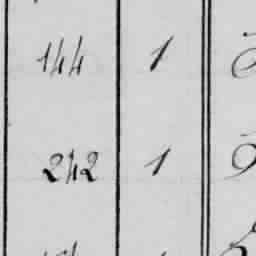 144 1
242 1